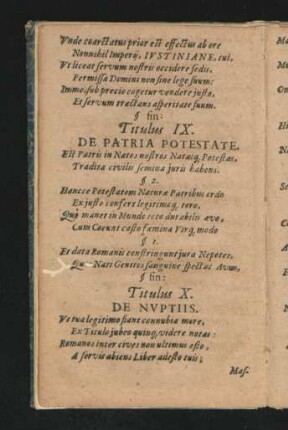 Vnde coarctatus prior est effectus ab ere
Nonnihil Imperij, IVSTINIANE, tui.
Vt liceat servum nostris occidere sedis,
Permissa Domino non sine lege suum:
Immo, sub precio cogetur vendere justo,
Et servum tractans asperitate suum.
§ fin:
Titulus IX.
DE PATRIA POTESTATE.
Est Patrii in Natos nostros Natasq, Potestas,
Tradita civilis semina juris habens.
§ 2.
Hancce Potestatem Naturæ Patribus ordo
Ex justo confert legitimoq, toro,
Qui manet in Mundo toto durabilis ævo,
Cum Coeunt casto fæmina Virq, modo
§ 1.
Et data Romanis constringunt jura Nepotes,
Nati Genitos sanguine spectat Avum,
§ fin:
Titulus X.
DE NVPTIIS.
Ve tua legitimo fiant connubia more,
Ex Titulo jubeo quinq, videre notas:
Romanos inter cives non ultimus esto,
A servis abiens Liber adesto tuis;
Mas.